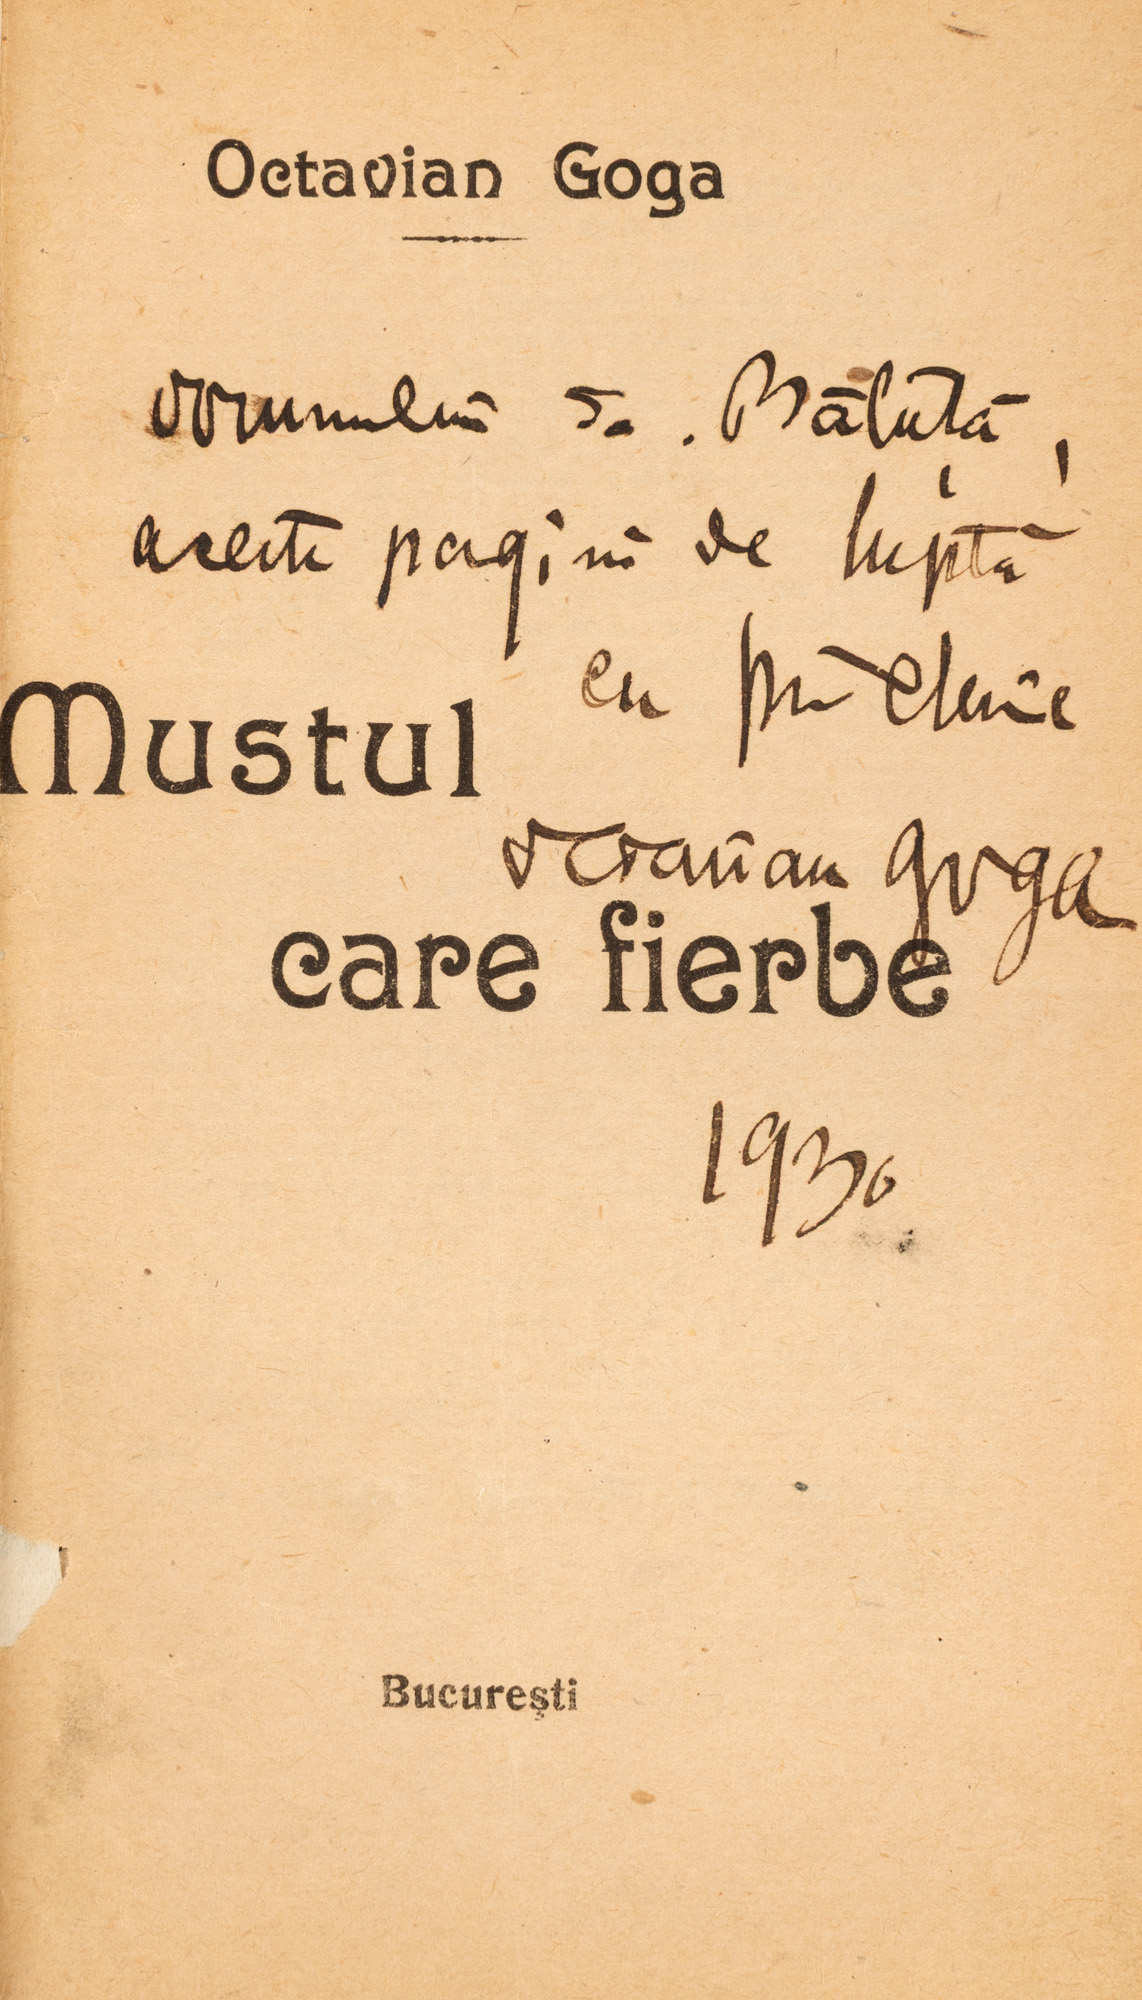 Octavian Goga
domnului Băluță,
aceste pagini de luptă
cu prietenie
Mustul
Octavian Goga
care fierbe
1930
București